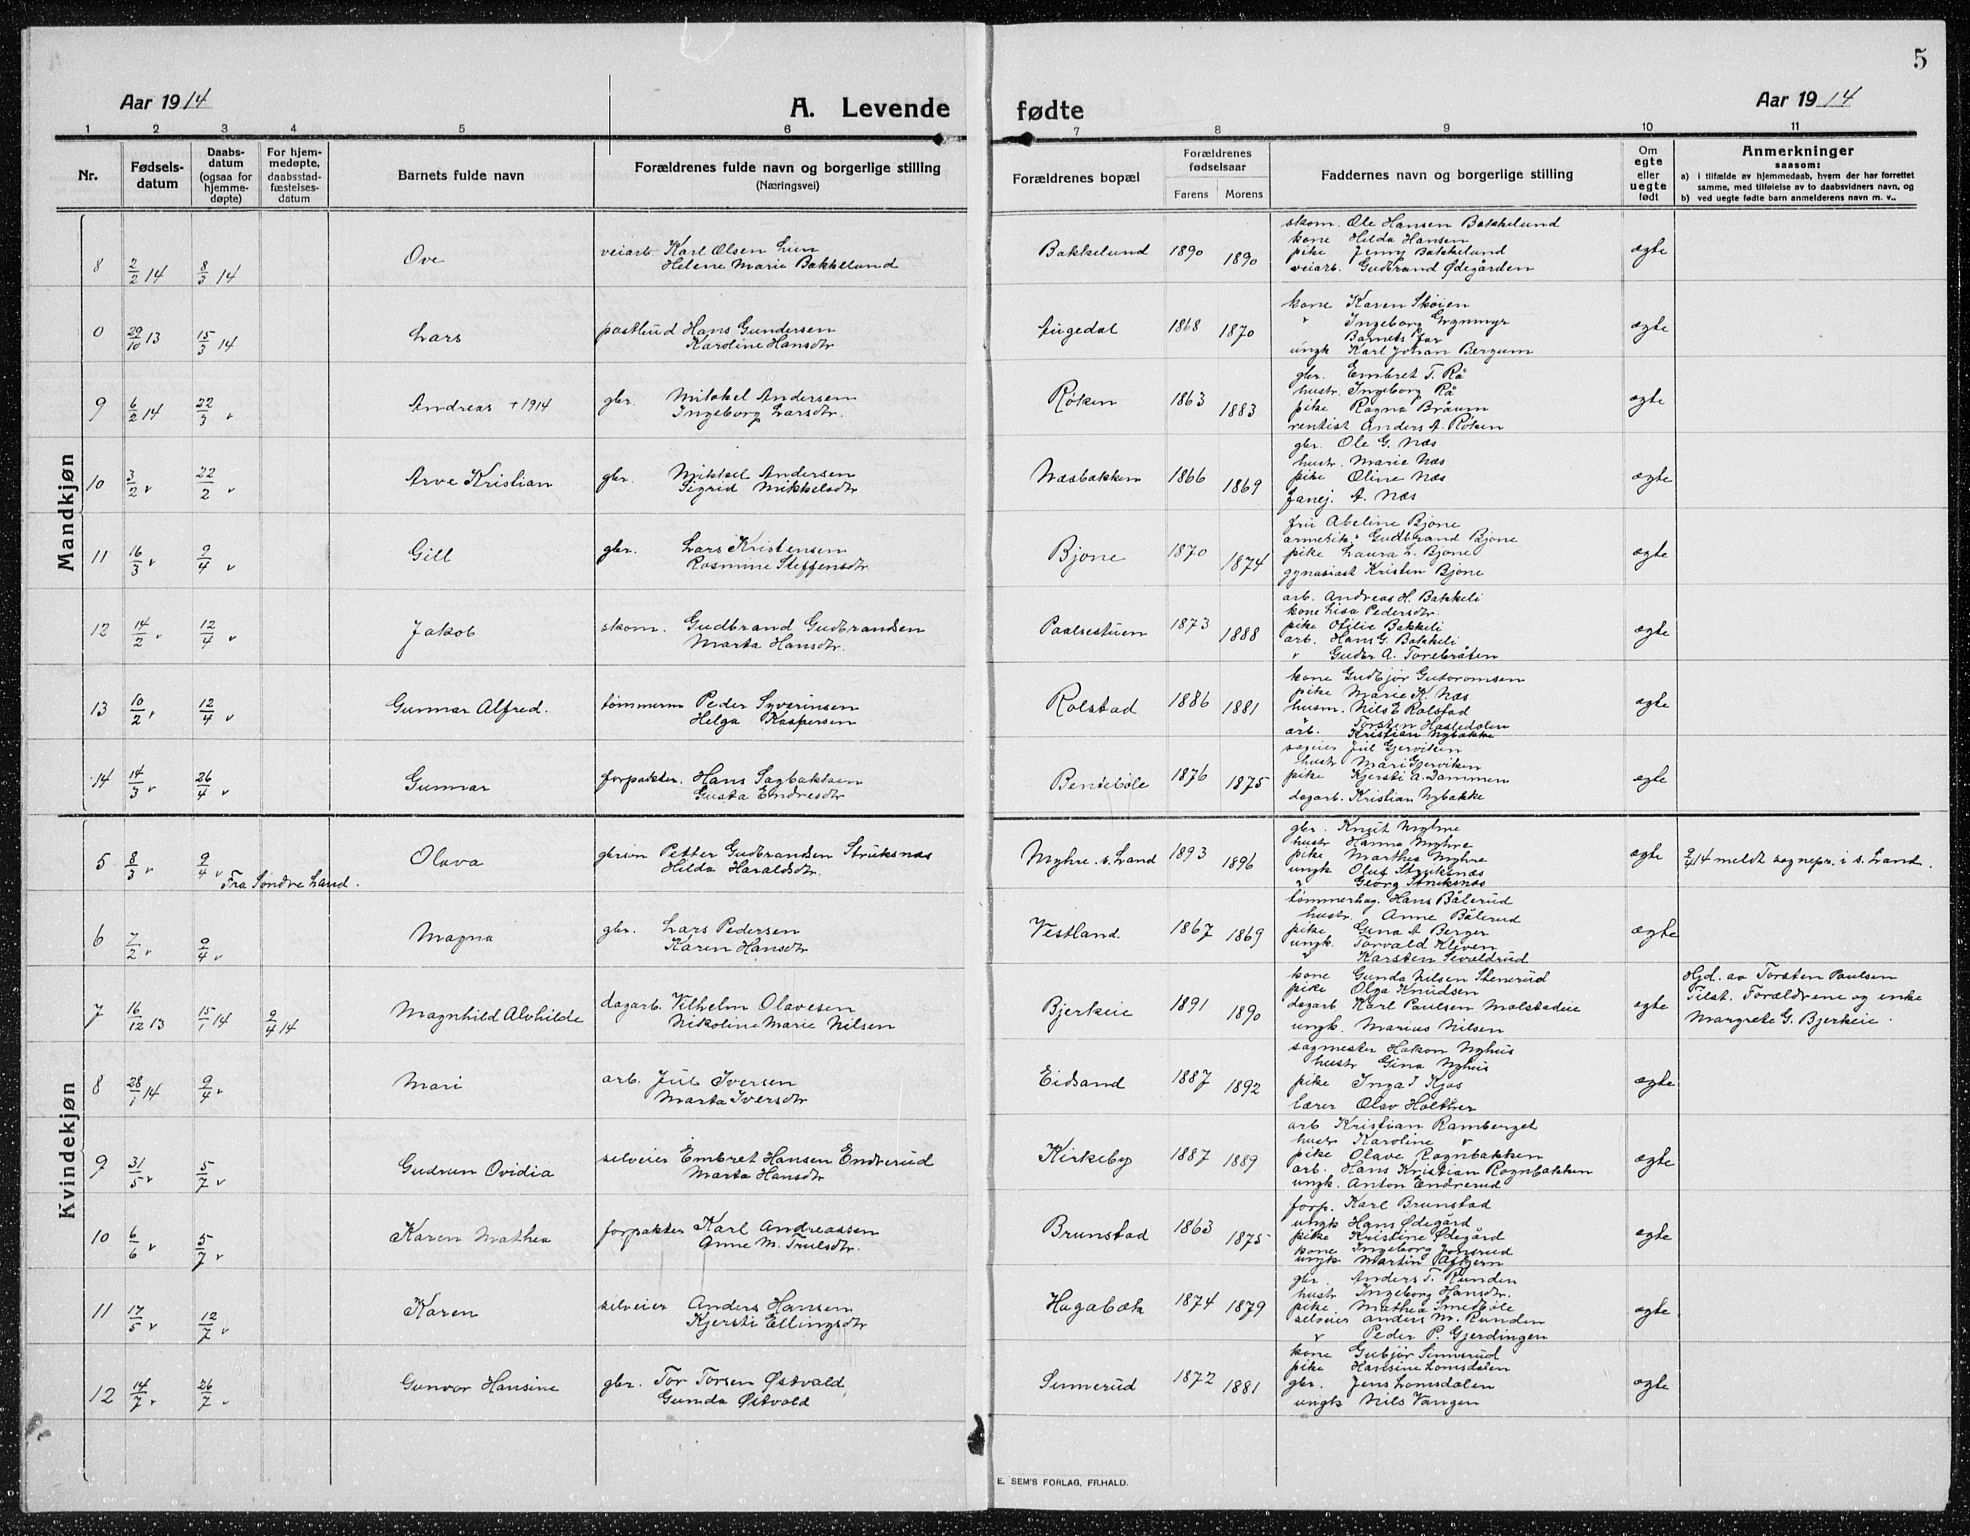 5
Aar 1914
A. Levende fødte
Aar 1914
1 2 3 4 5 6 7 8 9 10 11
Nr.
Fødsels-
datum
Daabs-
datum
(ogsaa for
hjemme-
døpte)
For hjem-
medøpte,
daabsstad-
fæstelses-
datum
Barnets fulde navn
Forældrenes fulde navn og borgerlige stilling
(Næringsvei)
Forældrenes bopæl
Forældrenes
fødselsaar
Farens Morens
Faddernes navn og borgerlige stilling
Om
egte
eller
uegte
født
Anmerkninger
saasom:
a) i tilfælde av hjemmedaab, hvem der har forrettet
samme, med tilføielse av to daabsvidners navn, og
b) ved uegte fødte barn anmelderens navn m. v..
Mandkjøn
8 2/2 14 8/3 14 Ove
veiarb. Karl Olsen Lien
Helene Marie Bakkelund
Bakkelund 1890 1890
skom. Ole Hansen Bakkelund
kone Hilda Hansen
pike Jenny Bakkelund
veiarb. Gudbrand Ødegården
egte
0 29/10 13 15/3 14 Lars
postbud Hans Gundersen
Karoline Hansdtr
Augedal 1868 1870
kone Karen Skøien
" Ingeborg Grynmyr
Barnets far
ungk Karl Johan Bergum
egte
9 6/2 14 22/3 " Andreas +1914
gbr. Mikkel Andersen
Ingeborg Larsdtr.
Røken 1863 1883
gbr. Embret T. Rå
hustr. Ingeborg Rå
pike Ragna Bråum
rentist Anders A. Røken
egte
10 3/2 " 22/2 " Arve Kristian
gbr. Mikkel Andersen
Sigrid Mikkelsdtr
Næsbakken 1866 1869
gbr. Ole G. Næs
hustr. Marie Næs
pike Oline Næs
fanej. A. Næs
egte
11 16/3 " 9/4 " Gill
gbr. Lars Kristensen
Rosmine Steffensdtr.
Bjone 1870 1874
fru Abeline Bjone
amerik. Gudbrand Bjone
pike Laura L. Bjone
gynasiast Kristen Bjone
egte
12 14/2 " 12/4 " Jakob
skom. Gudbrand Gudbrandsen
Marta Hansdtr.
Paalsestuen 1873 1888
arb. Andreas H. Bakkeli
kone Lisa Pedersdtr.
pike Otilie Bakkeli
arb. Hans G. Bakkeli
" Guder A. Torebråten
egte
13 10/2 " 12/4 " Gunnar Alfred.
tømmerm Peder Syverinsen
Helga Kaspersen
Rolstad 1886 1881
kone Gudbjør Gutoromsen
pike Marie K. Næs
husm. Nils E Rolstad
" Torsten Hasledalen
arb. Kristian Nybakke
egte
14 14/3 " 26/4 " Gunnar
forpakter. Hans Sagbakken
Gusta Endresdtr
Bentebøle 1876 1875
sageier Jul Gjerviken
hustr Mari Gjerviken
pike Kjersti A. Dammen
dagarb. Kristian Nybakke
egte
Kvindekjøn
5 8/3 " 9/4 " Olava
Fra Søndre Land.
gbrsøn Petter Gudbrandsen Struksnæs
Hilda Haraldsdtr.
Myhre. s. Land 1893 1896
gbr. Knut Myhre
hustr Hanna Myhre
pike Marthea Myhre
ungk Oluf Struksnæs
" Georg Struksnæs
egte 9/4 14 meldt sognepr. i s. Land.
6 7/2 " 9/4 " Magna
gbr. Lars Pedersen
Karen Hansdtr
Vestland. 1867 1869
tømmerhug. Hans Bålerud
hustr. Anne Bålerud
pike Gina A Berger
ungk. Torvald Kleven
" Karsten Sevaldrud
egte
7 16/12 13 15/1 14 9/4 14 Magnhild Alvhilde
dagarb. Vilhelm Olavesen
Nikoline Marie Nilsen
Bjerkeie 1891 1890
kone Gunda Nilsen Stenerud
pike Olga Knudsen
dagarb Karl Paulsen Molstadeie
ungk. Marius Nilsen
egte
Hjd. av Torsten Paulsen
Tilst. Forældrene og enke
Margrete G. Bjerkeie.
8 28/1 14 9/4 " Mari
arb. Jul Iversen
Marta Iversdtr
Eidsand 1887 1892
sagmester Hakon Nyhus
hustr Gina Nyhus
pike Inga J Kjos
lærer Olav Holther
egte
9 31/5 " 5/7 " Gudrun Ovidia
selveier Embret Hansen Endrerud
Marta Hansdtr
Kirkeby 1887 1889
arb Kristian Ramberget
hustr Karoline "
pike Olave Rognbakken
arb. Hans Kristian Rognbakken
ungk. Anton Endrerud
egte
10 6/6 " 5/7 " Karen Mathea
forpakter Karl Andreassen
Anne M. Trulsdtr.
Brunstad 1863 1875
forp. Karl Brunstad
ungk Hans Ødegård
pike Kristine Ødegård
kone Ingeborg Jonsrud
ungk Martin
egte
11 17/5 " 12/7 " Karen
selveier Anders Hansen
Kjersti Ellingsdtr
Hagabæk 1874 1879
gbr. Anders T. Runden
hustr Ingeborg Hansdtr.
pike. Mathea Smedbøle
selveier Anders M. Runden
" Peder P. Gjerdingen
egte
12 14/7 " 26/7 " Gunvor Hansine
gbr. Tor Torsen Østvold
Gunda Østvold
Sinnerud 1872 1881
kone Gubjør Sinnerud
pike Hansine Lomsdalen
gbr. Jens Lomsdalen
ungk Nils Vangen
egte
E. SEM'S FORLAG, FR.HALD.